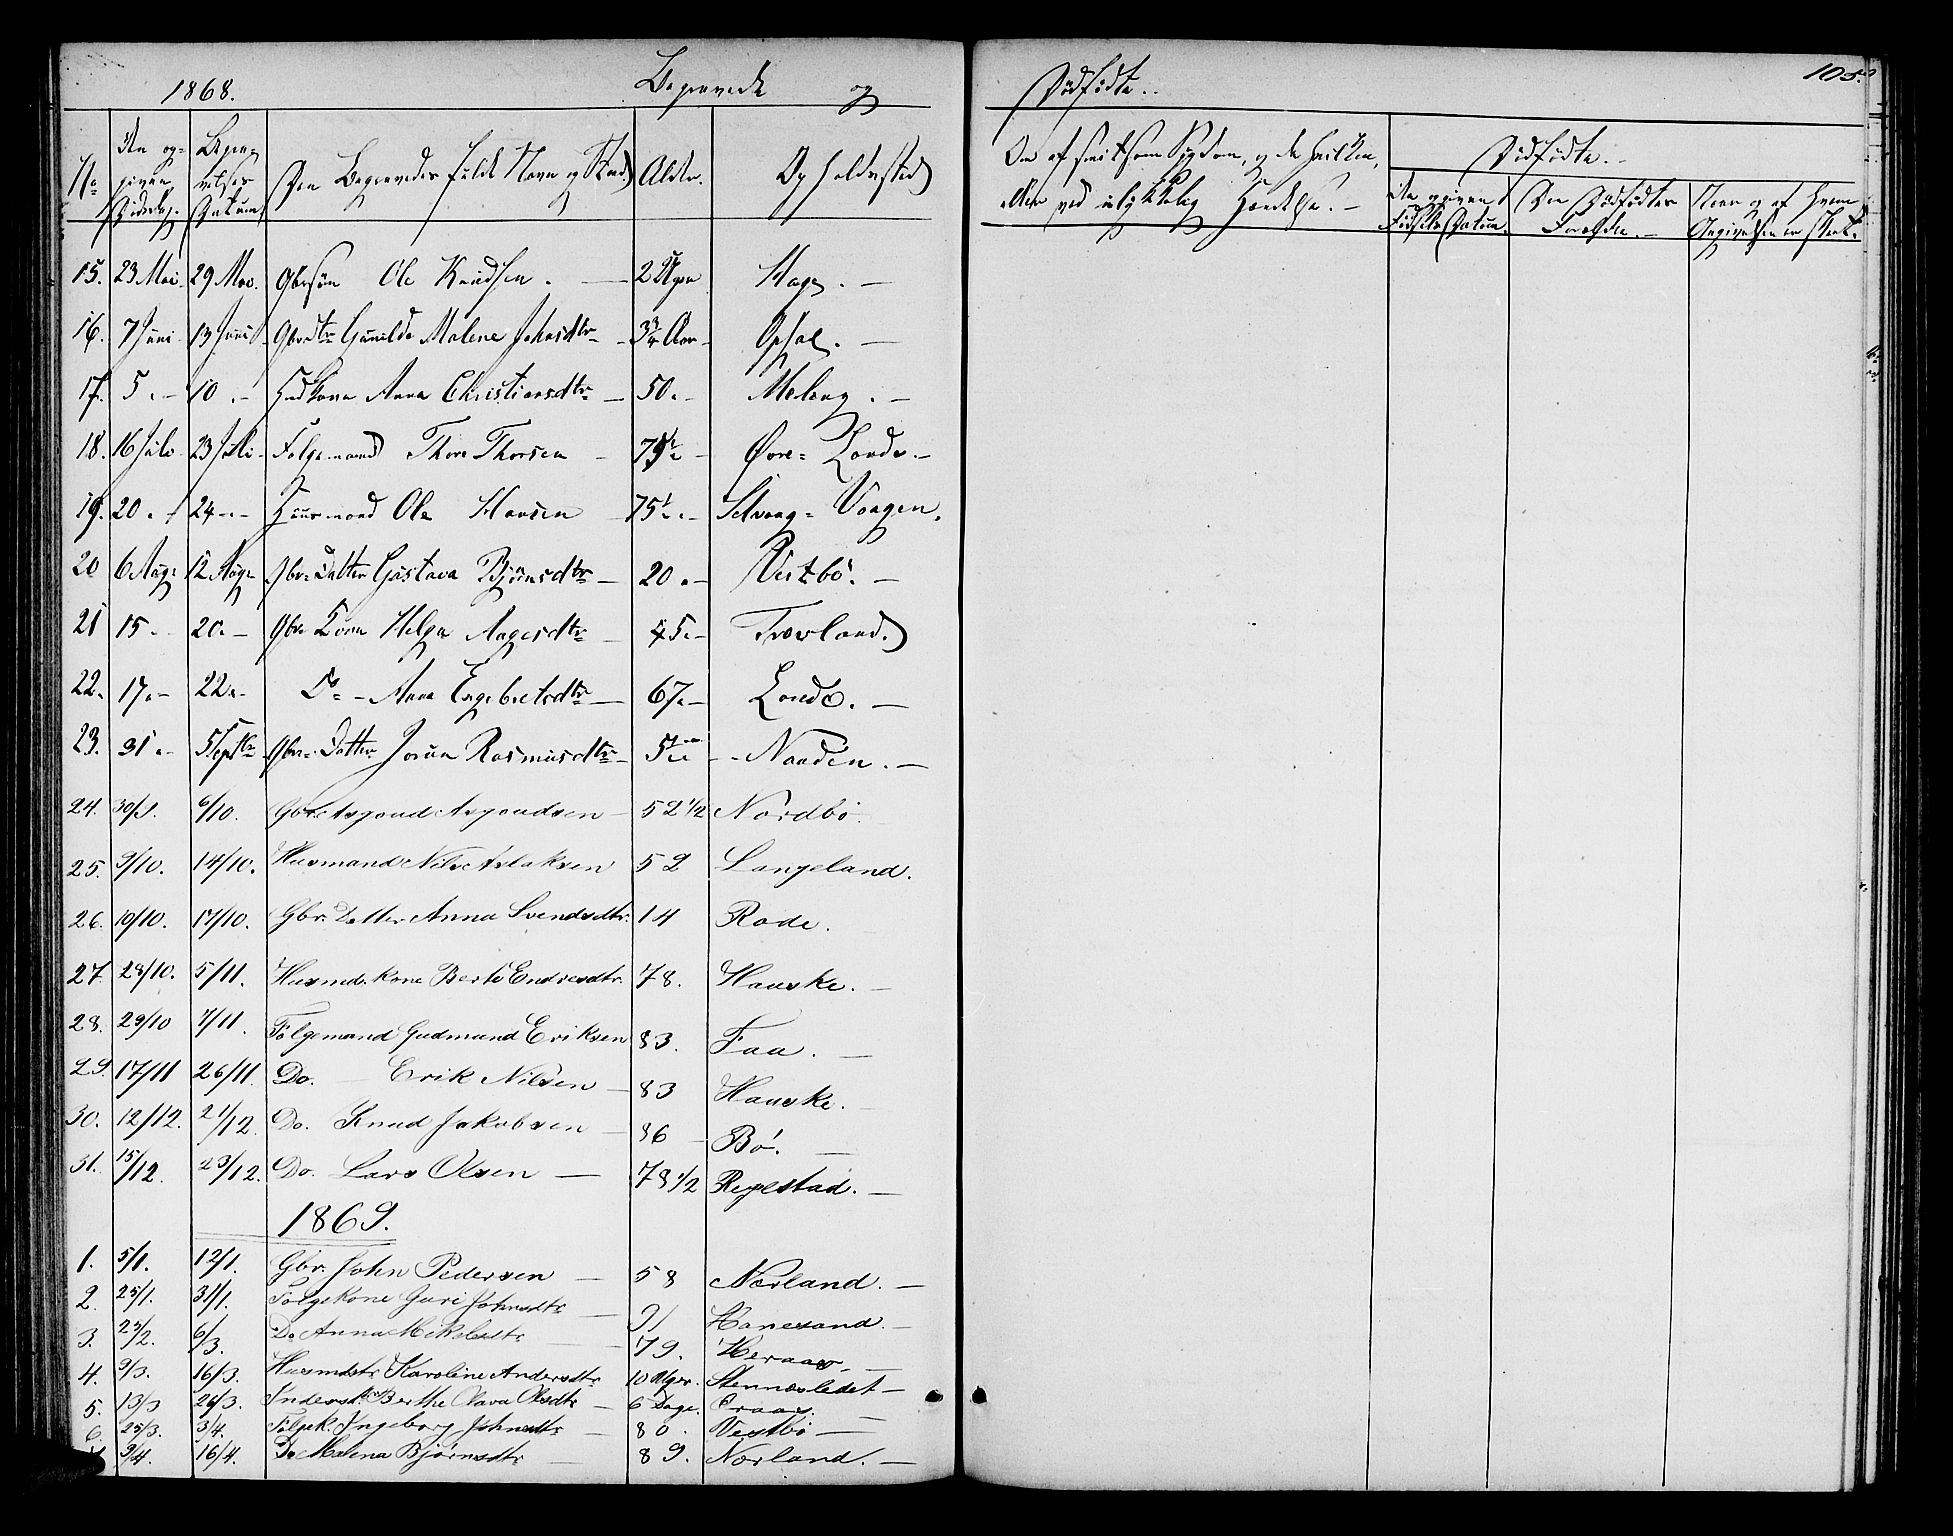 1868. Begravede og Dødfødte. 105.
No Den opgivne Dødsdag. Begravelses Datum Den Begravedes fulde Navn og Stand Alder. Opholdsted
Om af smitsom Sygdom, og da hvilken,
eller ved ulykkelig Hændelse.
Dødfødte.
Den opgivne Fødsels Datum. Den Dødfødtes Forældre. Naar og af hvem Angivelsen er skeet.
15. 23 Mai 29 Mai. Gbrsøn Ole Knudsen. 2 Uger Hage.
16. 7 Juni 13 Juni Gbrdtr Gunilde Malene Johnsdtr 3 3/4 Aar Opsal.
17. 5 10 Huskone Anna Christiansdtr 50 Meling.
18. 16 Juli 23 Juli Følgemand Thore Thorsen 79 1/2 Øvre-Lande.
19. 20 24 Huusmand Ole Hansen 75 1/2 Selvaag-Vaagen.
20 6 Aug. 12 Aug. Gbr. Datter Gustava Bjørnsdtr 20 Vestbø.
21 15 20 Gbr. Kone Helga Aagesdtr 45 Tverland.
22. 17 22 Do Anna Engebretsdtr 67 Lande.
23. 31 5 Septbr Gbr. Datter Jorun Rasmusdtr 5 1/2 Naaden.
24. 30/9. 6/10. Gbr. Asgoud Asgoudsen 52 1/2 Nordbø.
25. 9/10. 14/10. Husmand Nils Aslaksen 52 Langeland.
26. 10/10. 17/10. Gbr. Datter Anna Svendsdtr. 14 Rode.
27. 28/10. 5/11. Husmd. kone Berte Endresdtr. 78. Hauske.
28. 29/10 7/11. Følgemand Gudmund Eriksen 83. Faa.
29. 17/11 26/11. Do. Erik Nilsen 83 Hauske.
30. 12/12. 21/12. Do. Knud Jakobsen 86 Bø.
31. 15/12. 23/12. Do. Lars Olsen 78 1/2 Regestad.
1869.
1. 5/1. 12/1. Gbr. John Pedersen 58 Nørland.
2. 25/1. 31/1. Følgekone Guri Johnsdtr 91 Hanesand.
3. 25/2. 6/3. Do Anna Mikkelsdtr 79. Heraas.
4. 9/3. 16/3. Husmdstr Karoline Andersdtr 10 Uger. Stennesledet
5. 13/3 26/3. Inderst Berthe Olava Olsdtr 6 Dage.
6. 25/3. 3/4. Følgek. Ingeborg Johnsdtr 80. Vestbø
9/4. 16/4. Do Malena Bjørnsdtr 89. Nørland.